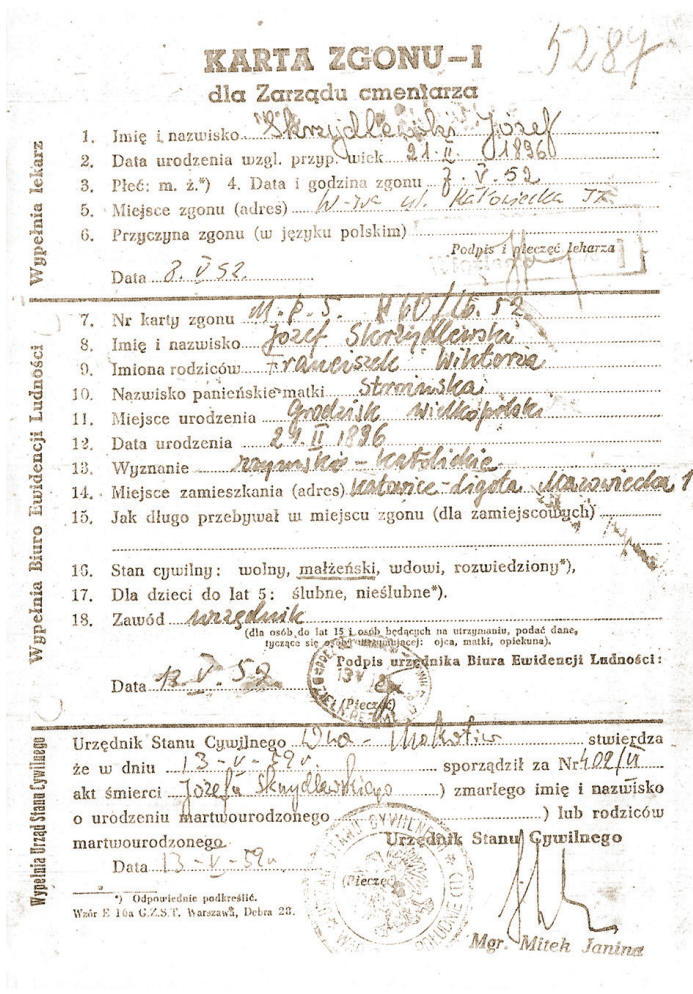 5287
KARTA ZGONU—I
dla Zarządu cmentarza
Wypełnia lekarz
1. Imię i nazwisko Skrzydlewski Józef
2. Data urodzenia wzgl. przyp. wiek 21. II 1896
3. Płeć: m. ż.*) 4. Data i godzina zgonu 7. V. 52
5. Miejsce zgonu (adres) W-wa ul.
6. Przyczyna zgonu (w języku polskim)
Podpis i pieczęć lekarza
Data 8. V 52.
Wypełnia Biuro Ewidencji Ludności
7. Nr karty zgonu M. P. 5.
8. Imię i nazwisko Józef Skrzydlewski
9. Imiona rodziców Franciszek Wiktoria
10. Nazwisko panieńskie matki Stroińska
11. Miejsce urodzenia Grodzisk wielkopolski
12. Data urodzenia II 1896
13. Wyznanie rzymsko-katolickie
14. Miejsce zamieszkania (adres) Katowice-Ligota Mazowiecka 1
15. Jak długo przebywał w miejscu zgonu (dla zamiejscowych)
16. Stan cywilny: wolny, małżeński, wdowi, rozwiedziony*),
17. Dla dzieci do lat 5: ślubne, nieślubne*).
18. Zawód urzędnik
(dla osób do lat 15 i osób będących na utrzymaniu, podać dane,
tyczące się osoby utrzymującej: ojca, matki, opiekuna).
Podpis urzędnika Biura Ewidencji Ludności:
Data 13. V. 52
(Pieczęć)
Wypełnia Urząd Stanu Cywilnego
Urzędnik Stanu Cywilnego Wwa - Mokotów stwierdza
że w dniu 13-V-52r. sporządził za Nr 402/II
akt śmierci Józefa Skrzydlewskiego ) zmarłego imię i nazwisko
o urodzeniu martwourodzonego ) lub rodziców
martwourodzonego
Urzędnik Stanu Cywilnego
Data 13-V-52r
(Pieczęć)
*) Odpowiednie podkreślić.
Wzór E 16a G.Z.S.T. Warszawa, Debra 28.
Mgr. Mitek Janina